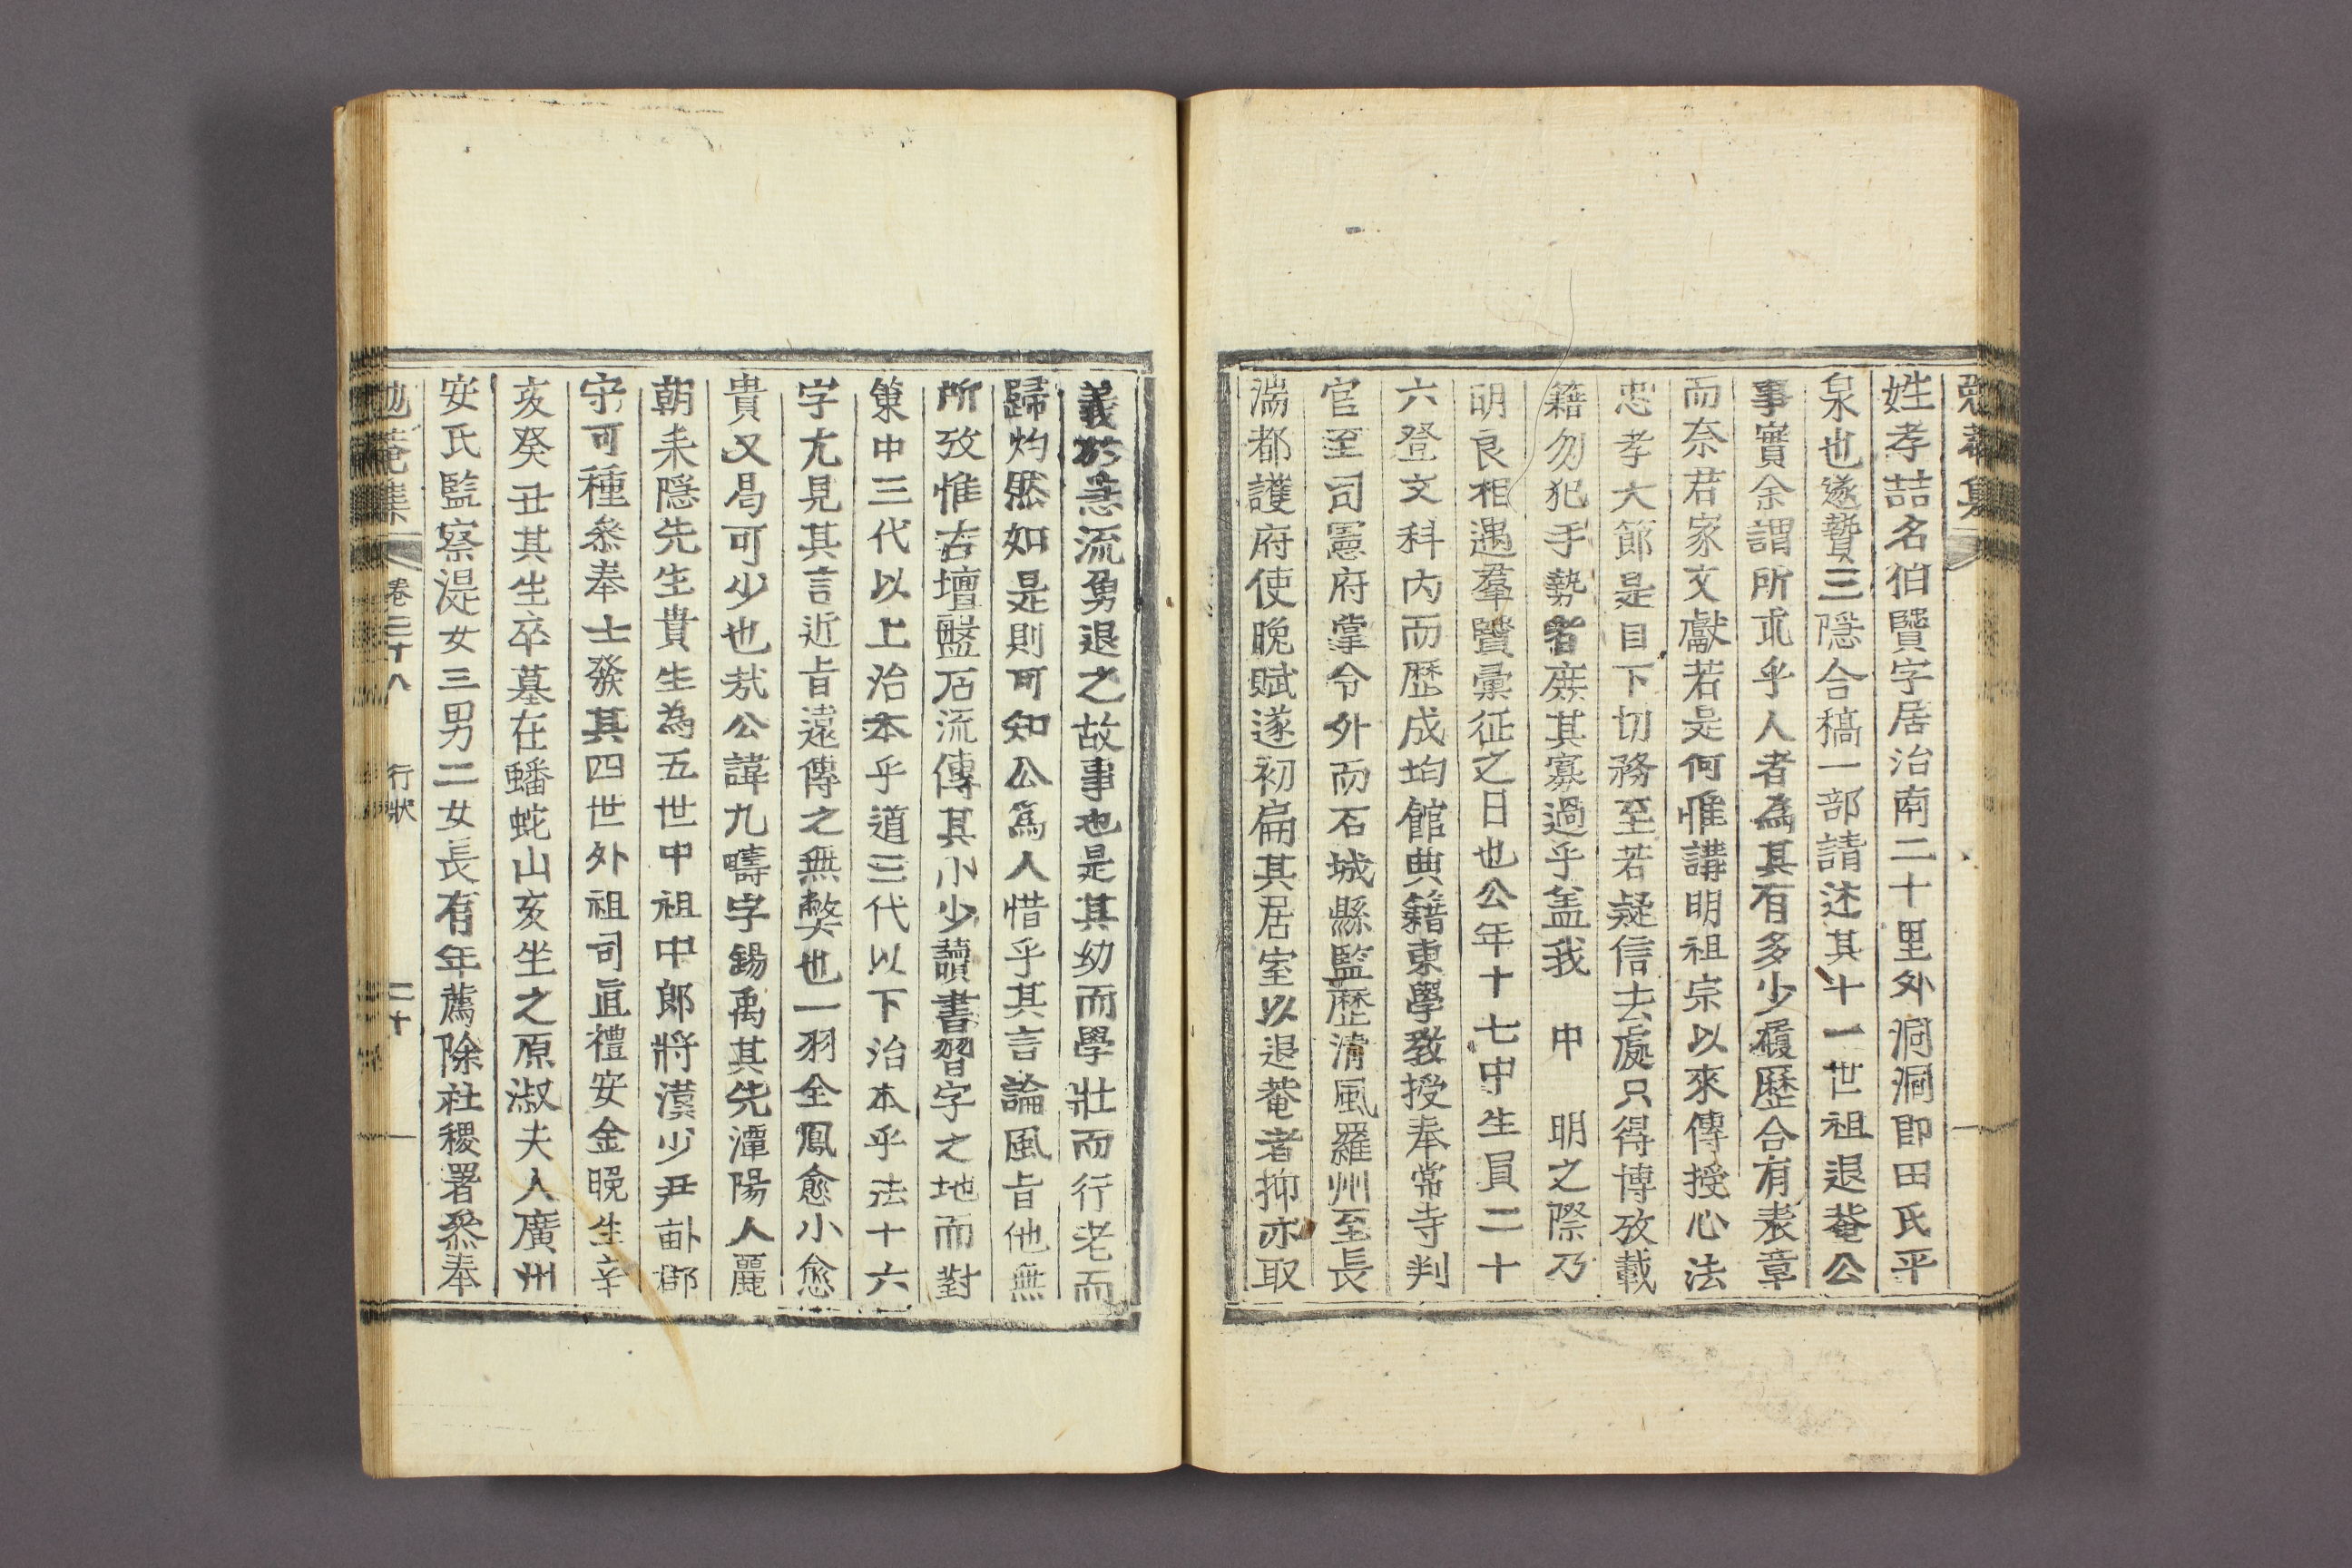 姓孝喆名伯贒字居治南二十里外洞洞即田氏平
泉也遂贄三隱合稿一部請述其十一世祖退菴公
事實余謂所乖乎人者為其有多少履歷合有表章
而奈君家文獻若是何惟講明祖宗以來傳授心法
忠孝大節是目下切務至若疑信去處只得博攷載
籍勿犯手勢者庶其寡過乎盖我 中 明之際乃
明良相遇羣贒彙征之日也公年十七中生員二十
六登文科內而歷成均館典籍東學敎授奉常寺判
官至司憲府掌令外而石城縣監歷淸風羅州至長
湍都護府使晩賦遂初扁其居室以退菴者抑亦取
義於急流勇退之故事也是其幼而學壯而行老而
歸灼然如是則可知公爲人惜乎其言論風旨他無
所攷惟古壇盤石流傳其小少讀書習字之地而對
策中三代以上治本乎道三代以下治本乎法十六
字尤見其言近旨遠傳之無獘也一羽全鳳愈小愈
貴又曷可少也㦲公諱九疇字錫禹其先潭陽人麗
朝耒隱先生貴生為五世中祖中郎將漢少尹畝郡
守可種叅奉士發其四世外祖司直禮安金晩生辛
亥癸丑其生卒墓在蟠蛇山亥坐之原淑夫人廣州
安氏監察湜女三男二女長有年薦除社稷署叅奉
勉菴集 卷二十八 行狀 二十